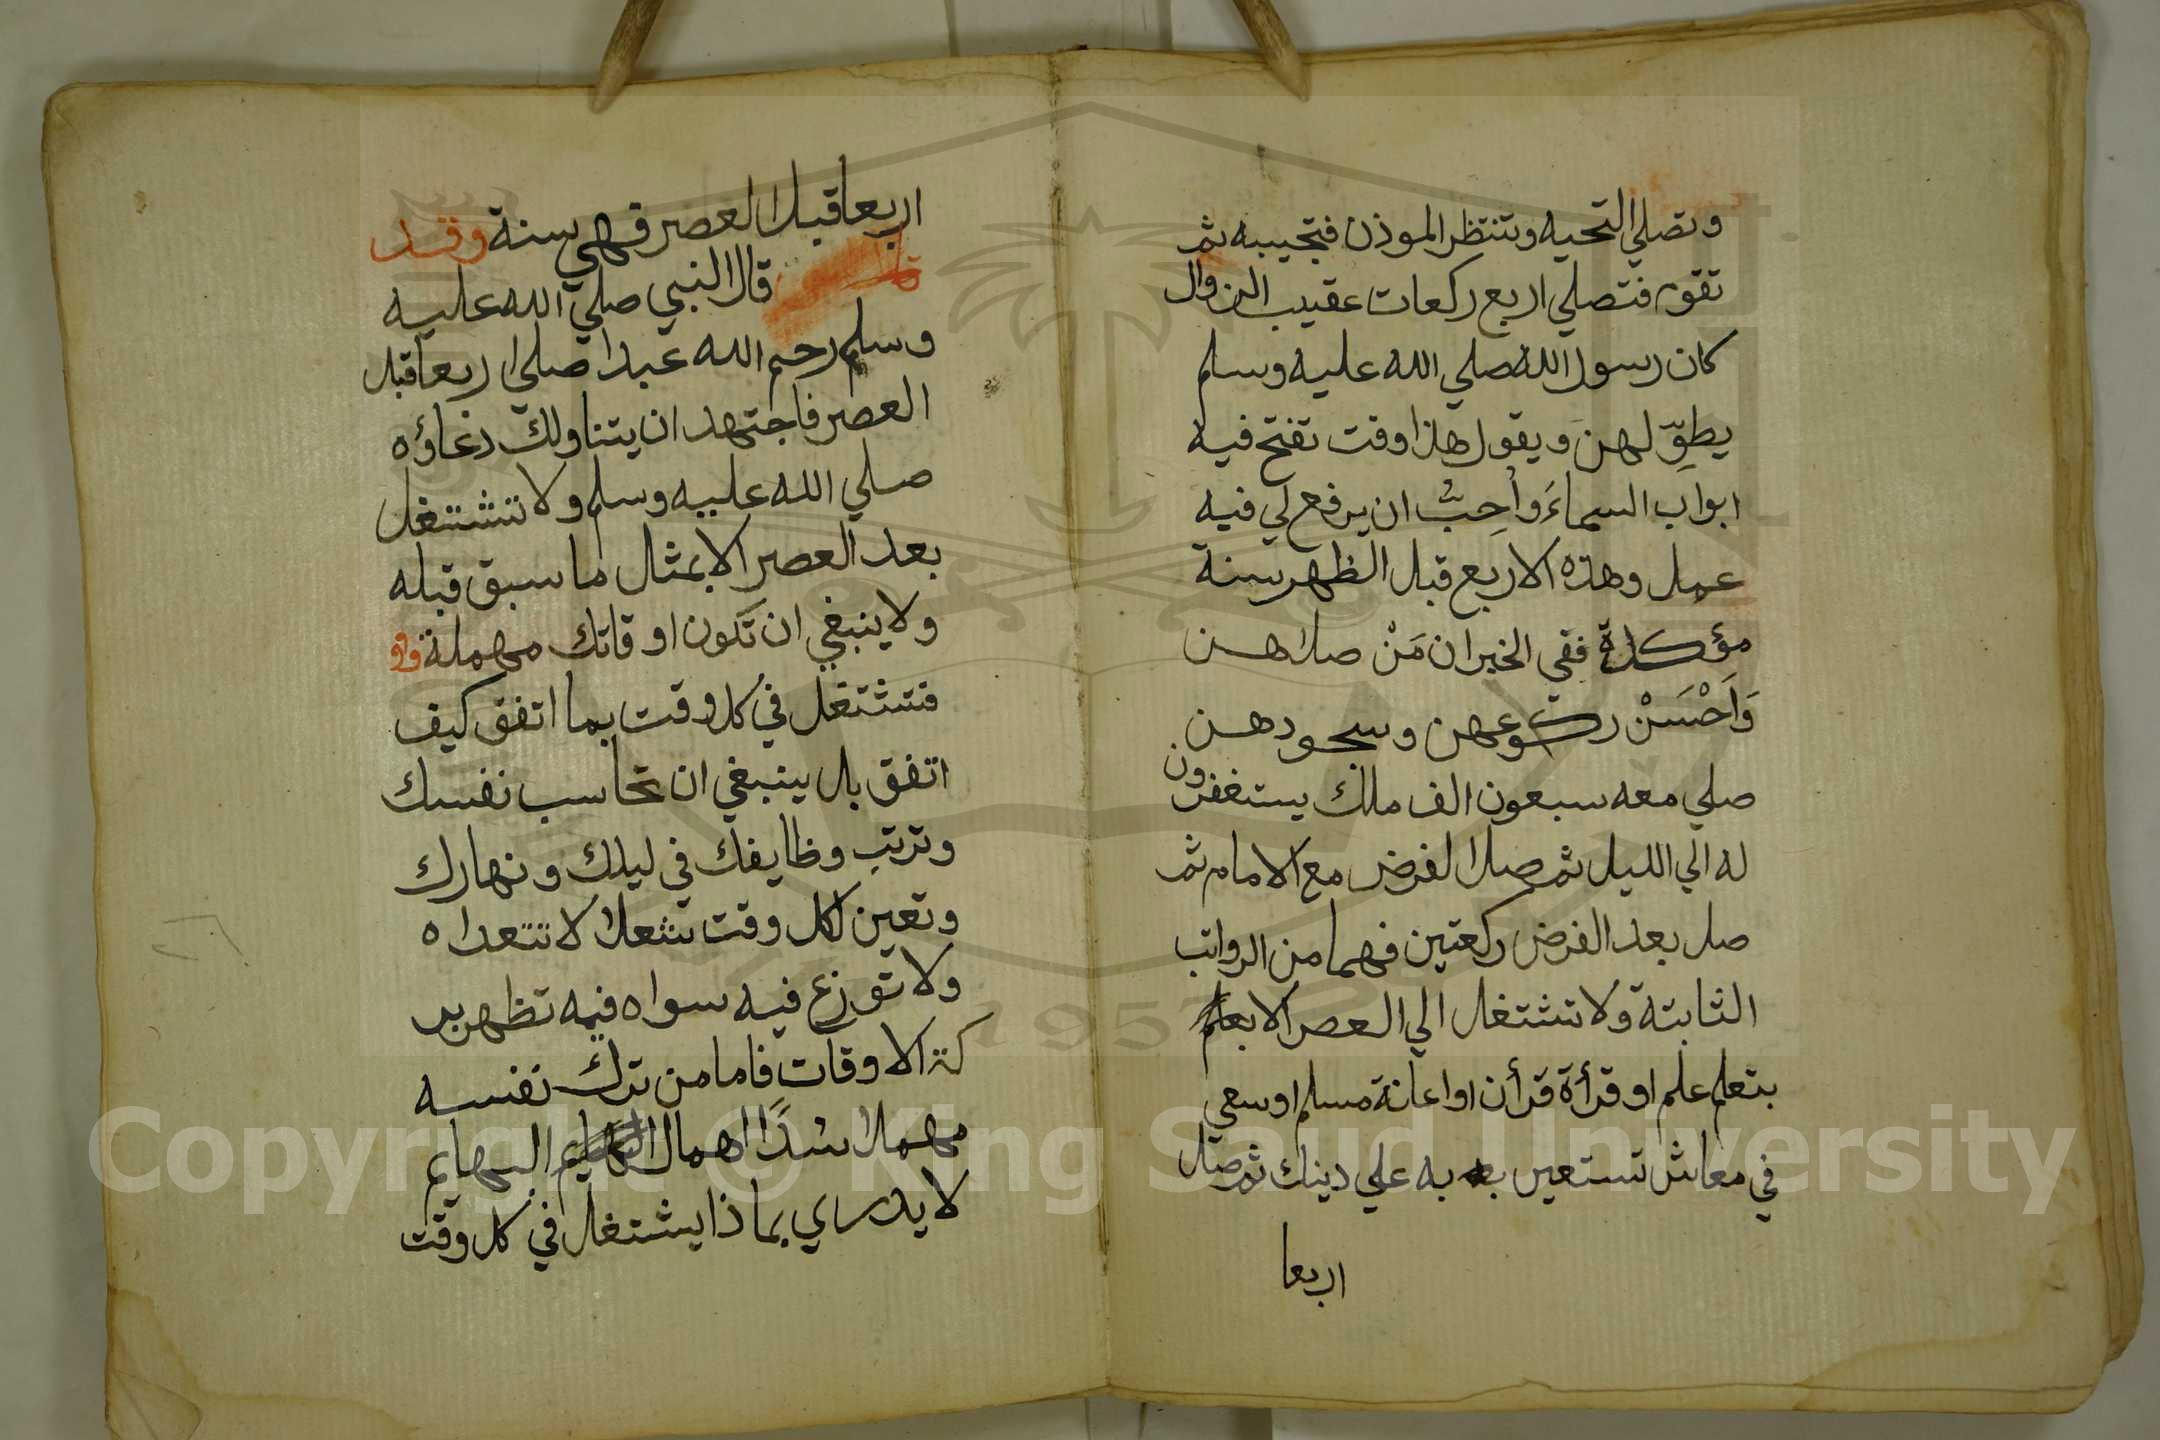 وتصلي التحيه وتنتظر الموذن فتجيبه ثم
تقوم فتصلي اربع ركعات عقيب الزوال
كان رسول الله صلي الله عليه وسلم
يطوّلهن ويقول هذا وقت تفتح فيه
ابواب السماءَ واُحِبُّ ان يرفع لي فيه
عمل وهذه الاربع قبل الظهر سنة
مؤكدة ففي الخبر ان مَنْ صلاهن
وَاَحْسَنْ ركوعهن وسجودهن
صلي معه سبعون الف ملك يستغفرون
له الي الليل ثم صل الفرض مع الامام ثم
صل بعد الفرض ركعتين فهما من الرواتب
الثابتة ولا تشتغل الي العصر الا
بتعلم علم او قرأة قرأن او اعانة مسلم او سعي
في معاش تستعين به علي دينك ثم صل
اربعا
اربعا قبل العصر فهي سنة وقد
قال النبي صلي الله عليه
وسلم رحم الله عبدا صلي اربعا قبل
العصر فاجتهد ان يتناولك دعاؤه
صلي الله عليه وسلم ولا تشتغل
بعد العصر الا بمثال ما سبق قبله
ولا ينبغي ان تكون اوقاتك مهملة
فتشتغل في كل وقت بما اتفق كيف
اتفق بل ينبغي ان تحاسب نفسك
وترتب وظايفك في ليلك ونهارك
وتعين لكل وقت شغلا لا تتعداه
ولا توزع فيه سواه فبه تظهر بر
كة الاوقات فاما من ترك نفسه
مهملا سُدًا اهمال البهايم
لا يدري بماذا يشتغل في كل وقت
Copyright © King Saud University
1957